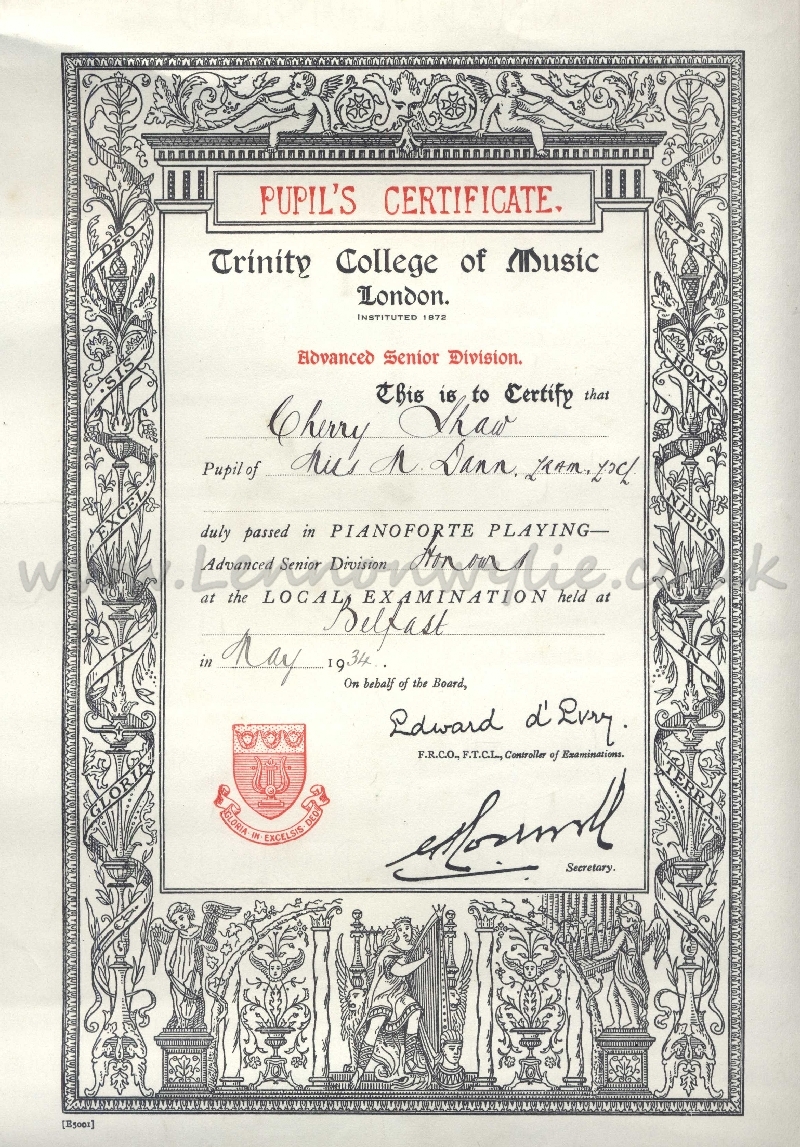 PUPIL'S CERTIFICATE.
Trinity College of Music
London.
INSTITUTED 1872
Advanced Senior Division.
This is to Certify that
Cherry Shaw
Pupil of Miss M. Dann, LRAM, LTCL
duly passed in PIANOFORTE PLAYING—
Advanced Senior Division Honours
at the LOCAL EXAMINATION held at
Belfast
in May 1934.
On behalf of the Board,
Edward d'Evry.
F.R.C.O., F.T.C.L., Controller of Examinations.
Secretary.
GLORIA IN EXCELSIS DEO
GLORIA
IN
EXCEL
SIS
DEO
ET PAX
HOMI
NIBUS
IN
TERRA
www.Lennonwylie.co.uk
[E5001]